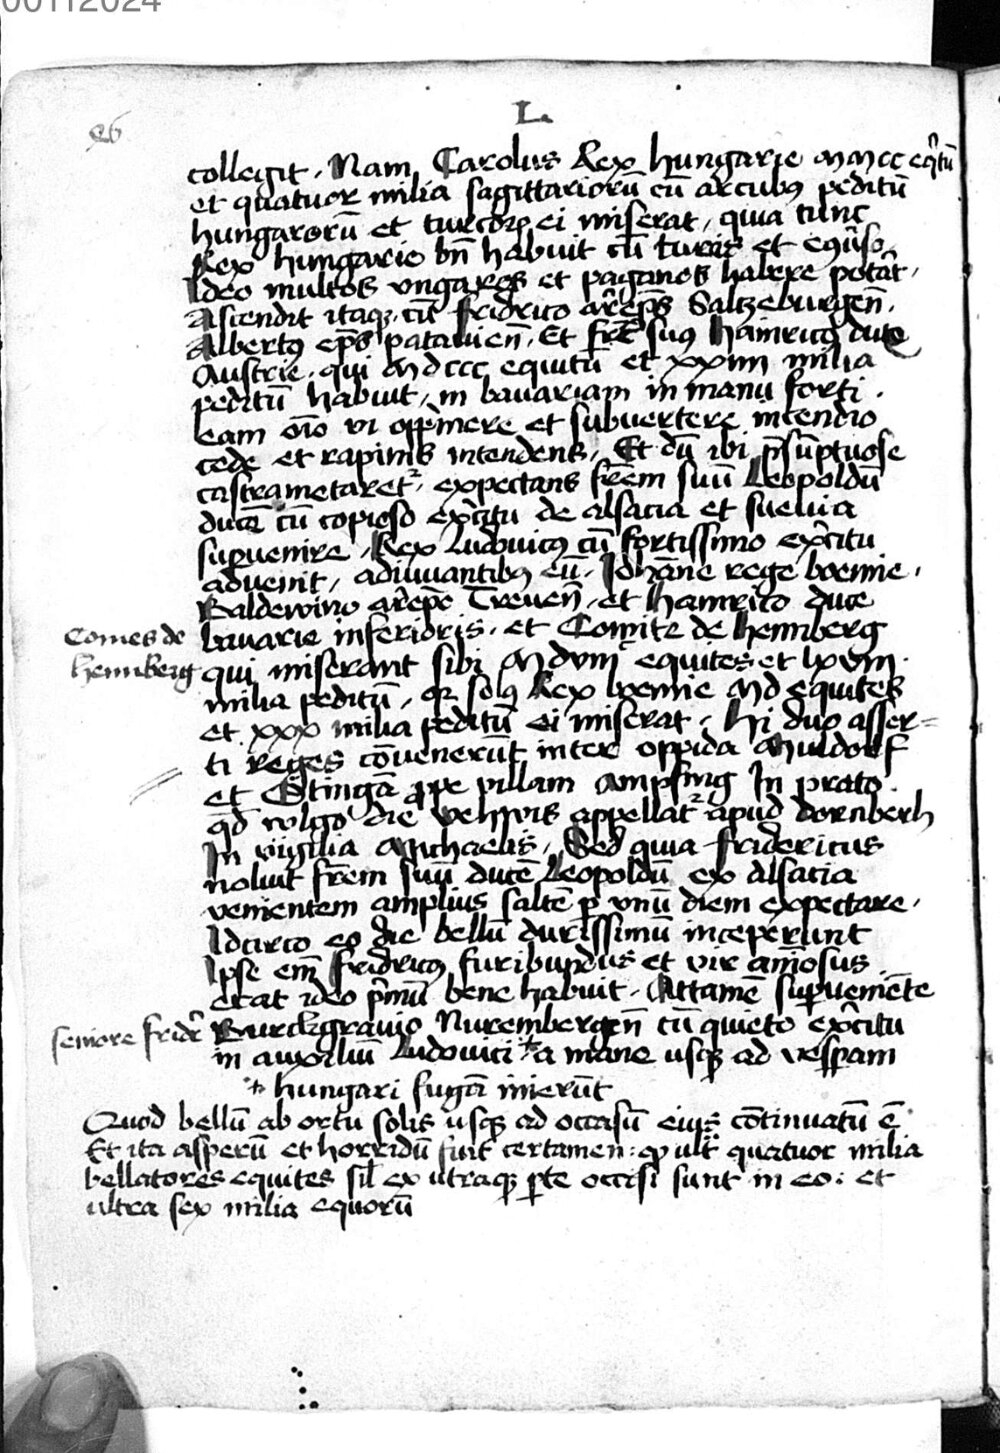 00112024
26
L.
collegit. Nam Carolus Rex hungarie MMcc eq̃tũ
et quatuor milia sagittariorũ cũ arcubꝰ peditũ
hungarorũ et turcorꝝ ei miserat, quia tunc
Rex hungarie bñ habuit cũ turcis et
Ideo multos vngaros et paganos habere potãt.
Ascendit itaqꝫ cũ fridrico Saltzeburgeñ.
Albertꝰ ep̃s patavieñ. Et fr̃e suꝰ Hainricꝰ dux
Austrie. qui Mdccc equitũ et xxiiii milia
peditũ habuit, in bavariam in manu forti.
eam oĩo vi opp̃mere et subvertere incendio
cede et rapinis intendens, Et dũ ibi p̃sũptuose
castrametaret᷑, expectans fr̃em suũ Leopoldũ
ducẽ cũ copioso exc̃itu de alsacia et suevia
supvenire, Rex Ludovicꝰ cũ fortissimo exc̃itu
advenit, adiuvantibꝰ eũ. Johãne rege boemie.
Baldewino Treveñ, et Hainrico duce
Comes de
bavarie inferioris, et Comite de Hennberg
Hennberg
qui miserant sibi Mdviii equites et lxviii.
milia peditũ, solꝰ Rex boemie Md equites
et xxx milia peditũ ei miserat, Hi duo asser=
ti reges cõvenerũt inter oppida Muldorf
et Otingã ꝓpe villam Ampfing In prato.
qd̃ vulgo die vehvis appellat᷑ apud dornberh
In vigilia Michaelis, Sed quia fridericus
noluit fr̃em suũ ducẽ Leopoldũ ex Alsacia
venientem amplius saltẽ ꝑ vnũ diem expectare.
Idcirco eo die bellũ durissimũ inceperunt
Ipse eni᷑ fridricꝰ furibundus et vir aniõsus
erat ideo p̃mũ bene habuit. Attamẽ supveniẽte
seniore fridr̃
Burckgravio Nurembergeñ cũ quieto exc̃itu
in auxiliũ Ludovici + a mane usqꝫ ad vesꝑam
+ hungari fugã inierũt
Quod bellũ ab ortu solis usqꝫ ad occasũ eius cõtinuatũ ẽ
Et ita asperũ et horridũ fuit certamen: ꝙ ult᷑ quatuor milia
bellatores equites sil̃ ex utraqꝫ ꝑte occisi sunt in eo: et
ultra sex milia equorũ